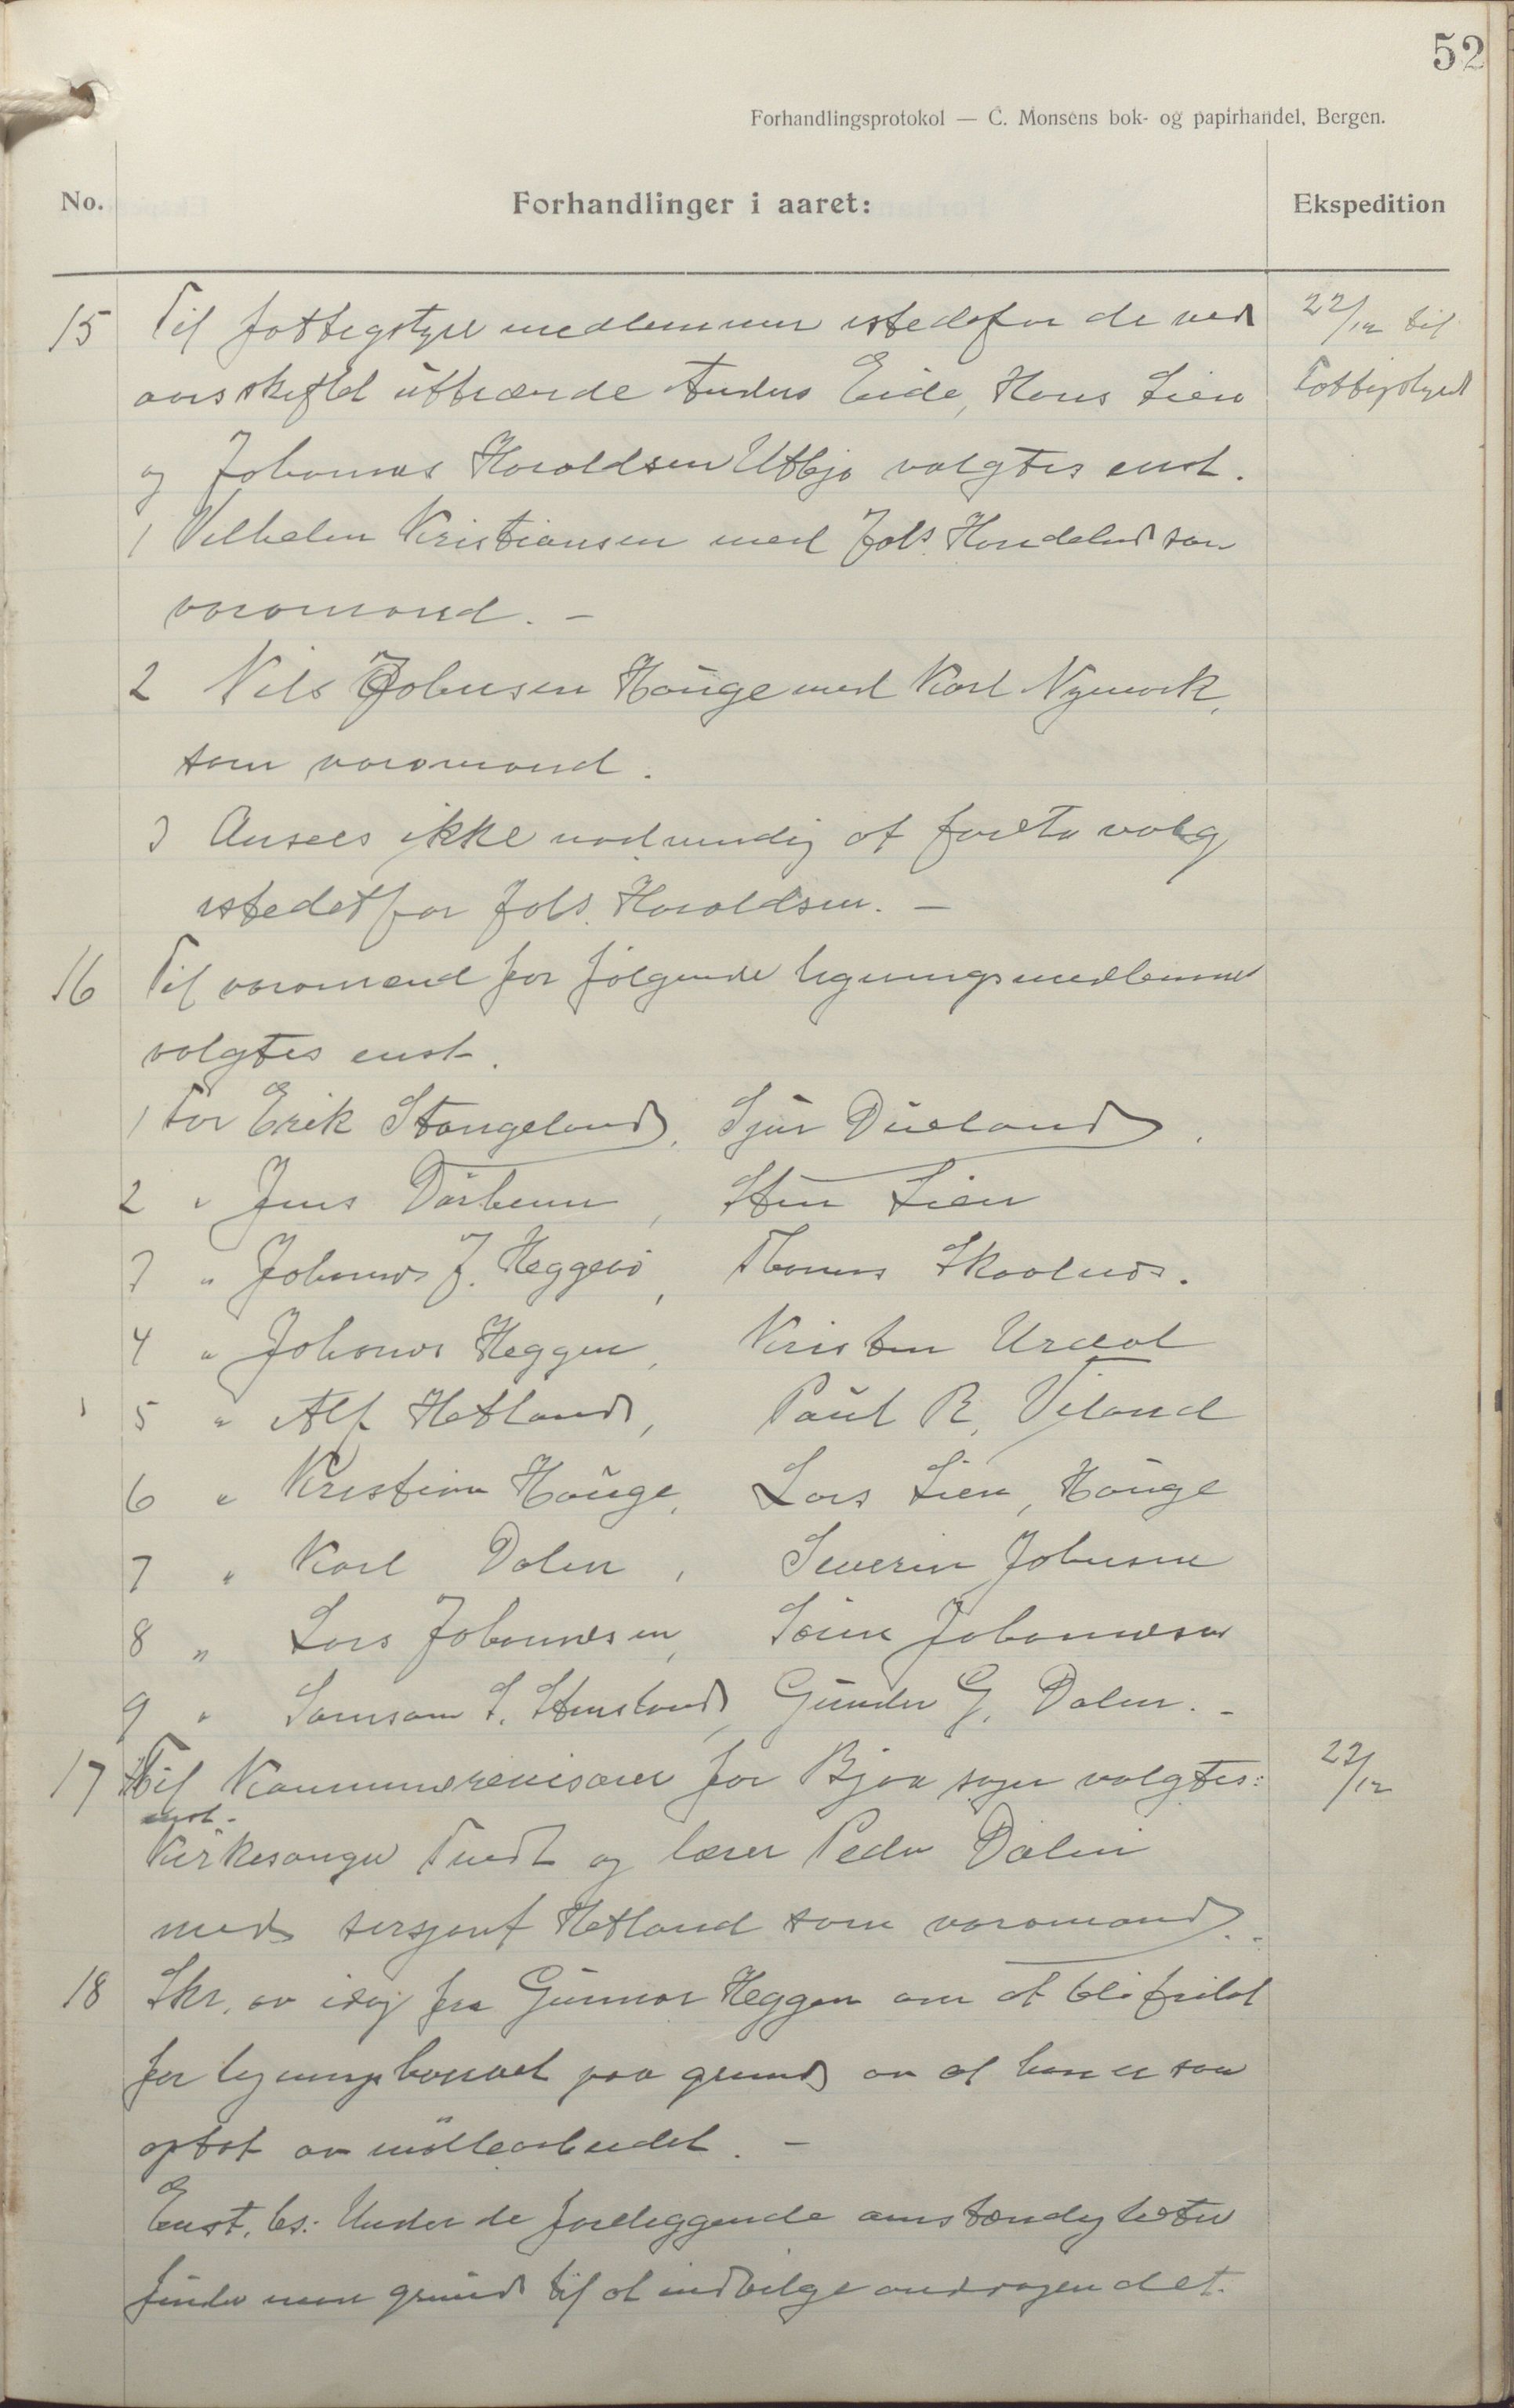 52
Forhandlingsprotokol — C. Monsens bok- og papirhandel, Bergen.
No. Forhandlinger i aaret: Ekspedition
15 Til fattigstyremedlemmer istedefor de ved 22/12 til
aarsskiftet uttrædende Anders Eide, Hans Lien Fattigstyret
og Johannes Haraldsen Utbjo valgtes enst.
1 Vilhelm Kristiansen med Johs. Handeland som
varamand. –
2 Nils Johnsen Hauge med Karl Nymark,
som varamand.
3 Ansees ikke nødvendig at foreta valg
istedet for Johs. Haraldsen. –
16 Til varamænd for følgende ligningsmedlemmer
valgtes enst.
1 For Erik Stangeland, Sjur Dueland.
2 " Jens Dårheim, Sten Lien
3 " Johannes J. Heggebø, Thomas Skaalnes.
4 " Johannes Heggen, Kristen Urdal
5 " Alf Hetland, Paul R. Viland
6 " Kristian Hauge, Lars Lien, Hauge
7 " Karl Dalen, Severin Johnsen
8 " Lars Johannesen, Søren Johannesen
9 " Samson S. Stensland, Gunder G. Dalen. –
17 Til Kommunerevisorer for Bjoa sogn valgtes: 22/12
enst.
Kirkesanger Tvedt og lærer Peder Dalen
med sersjant Hetland som varamand. –
18 Skr. av idag fra Gunnar Heggen om at bli fritat
for ligningshvervet paa grund av at han er saa
optat av møllearbeidet. –
Enst. bs.: Under de foreliggende omstændigheter
finder man grund til at indvilge andragendet.